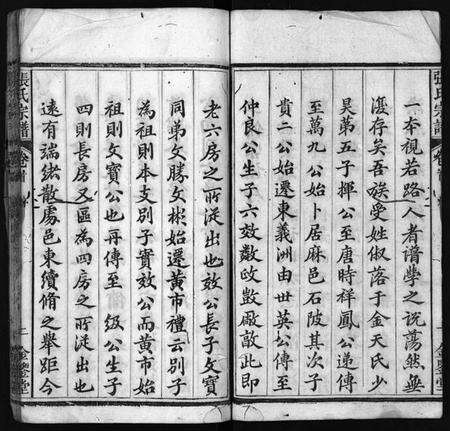 張氏宗譜
卷首
一本視若路人者譜學之說蕩然無
復存矣吾族受姓俶落于金天氏少
昊第五子揮公至唐時祥鳳公遞傳
至萬九公始卜居麻邑石陂其次子
貴二公始遷東義洲由世英公傳至
仲良公生子六效數敬敳厰敵此即
老六房之所從出也效公長子文寶
同弟文勝文彬始遷黃市禮云別子
為祖則本支別子實效公而黃市始
祖則文寶公也再傳至 級公生子
四則長房又區為四房之所從出也
遠有端緒散處邑東續脩之舉距今
張氏宗譜
卷首
二
金鑒堂